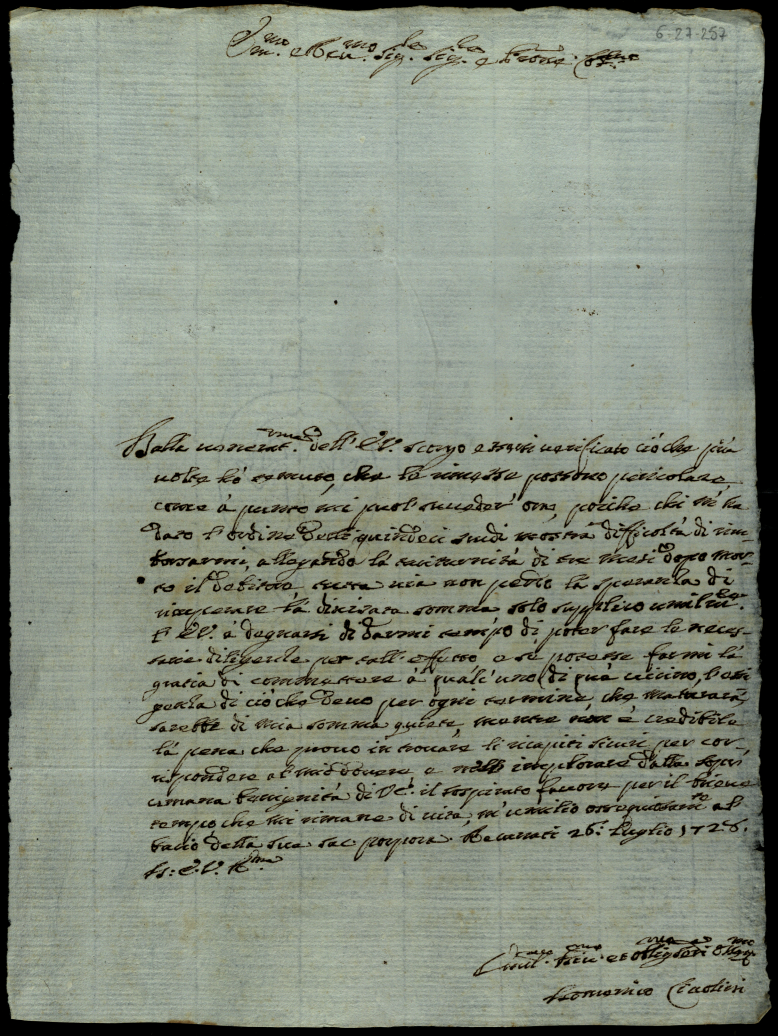 6-27-257
Em.mo e Rev.mo Sig. Sig. e Prone
Dalla venerat.ma dell' E.V. scorgo essersi verificato ciò che più
volte hò temuto, che le rimesse possono pericolare,
come à punto mi puol succeder' ora, poiche chi m'ha
dato l'ordine delli quindeci scudi mostra difficoltà di rim-
borsarmi, allegando la taciturnità di tre mesi dopo mor-
to il debitore tutta via non perdo la speranza di
ricuperare la divisata somma solo supplico umilm.te
l' E.V. à degnarsi di darmi tempo di poter fare le neces-
sarie diligenze per tall' effetto, e se potesse farmi la
gratia di commettere à qualc'uno di quà vicino,
di ciò che devo per ogni termine, che maturarà
sarebbe di mia somma quiete, mentre non è credibile
la pena che provo in trovare li ricapiti sicuri per cor-
rispondere al mio dovere, e nell' implorare dalla
umana benignità di V.E. il sospirato favore per il breve
tempo che mi rimane di vita, m'umilio ossequiosam.e al
bacio della sua sac. porpora Recanati 26. Luglio 1726.
D: E.V. R.ma
Umil. Dev. et Oblig. Ser.
Domenico